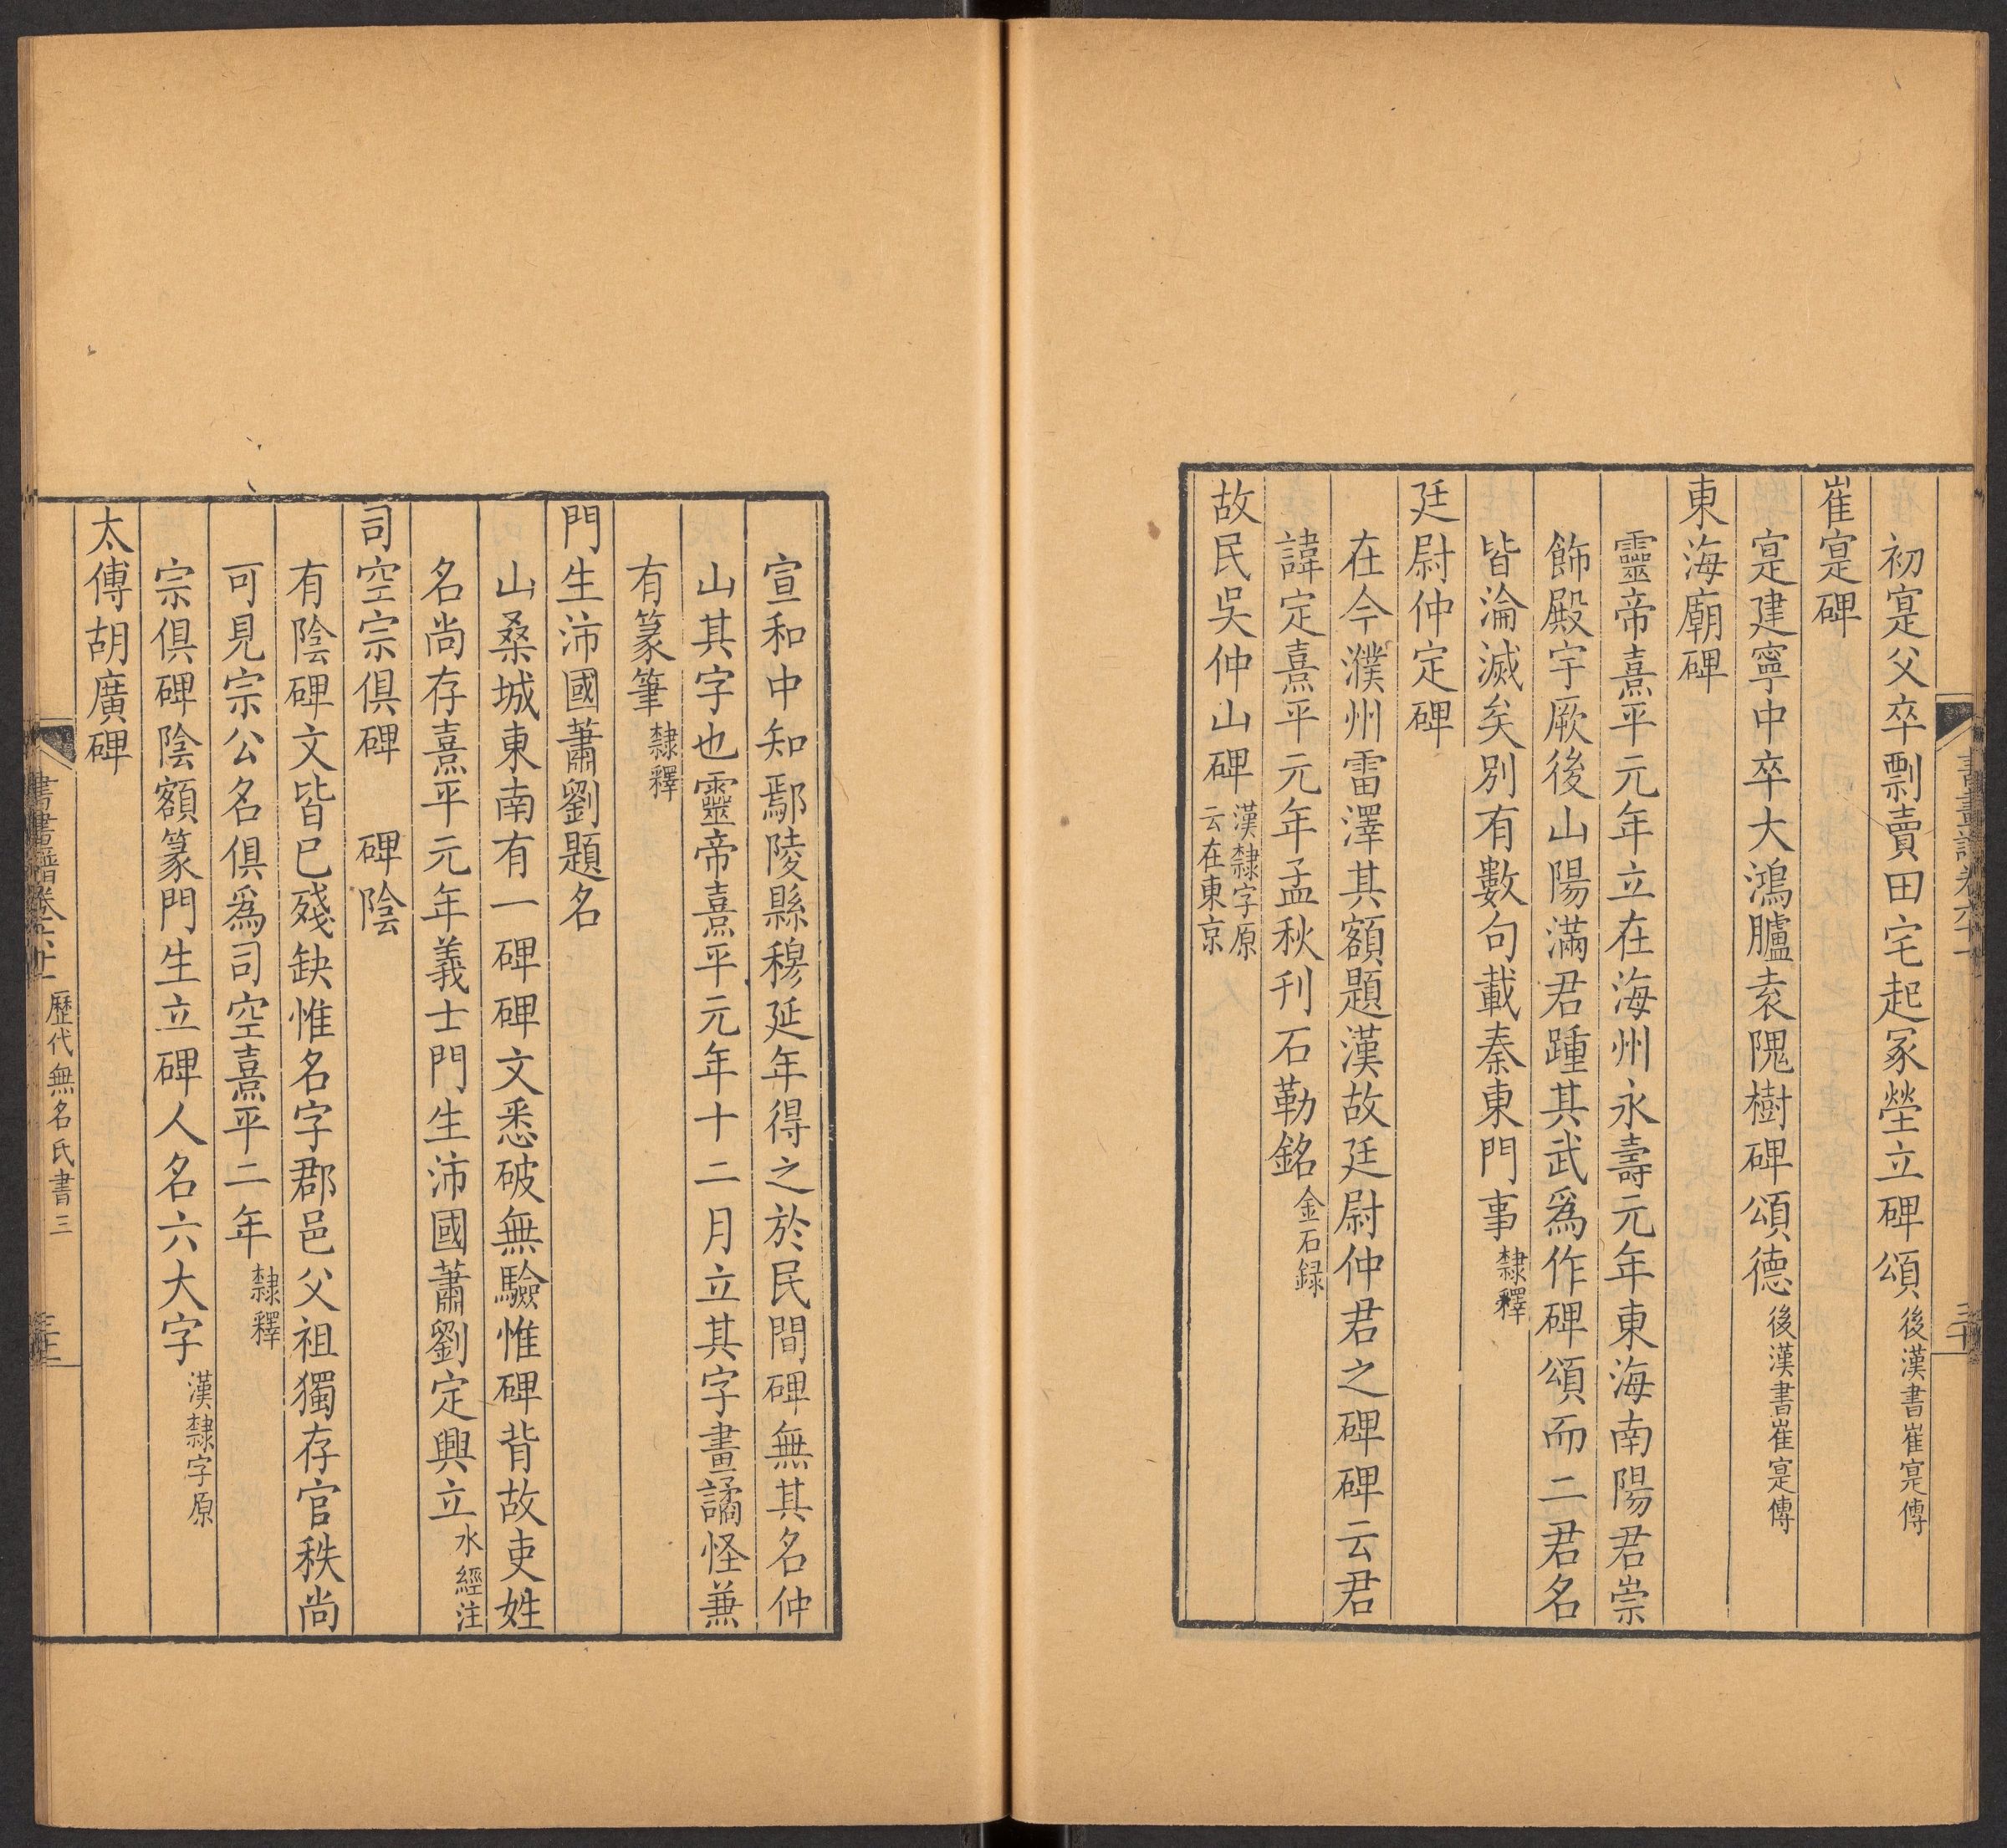 初寔父卒剽賣田宅起冢塋立碑頌後漢書崔寔傳
崔寔碑
寔建寧中卒大鴻臚袁隗樹碑頌德後漢書崔寔傳
東海廟碑
靈帝熹平元年立在海州永壽元年東海南陽君崇
飾殿宇厥後山陽滿君踵其武爲作碑頌而二君名
皆淪滅矣別有數句載秦東門事隸釋
廷尉仲定碑
在今濮州雷澤其額題漢故廷尉仲君之碑碑云君
諱定熹平元年孟秋刊石勒銘金石録
故民吳仲山碑漢隸字原云在東京
宣和中知鄢陵縣穆延年得之於民間碑無其名仲
山其字也靈帝熹平元年十二月立其字畫譎怪兼
有篆筆隸釋
門生沛國蕭劉題名
山桑城東南有一碑碑文悉破無驗惟碑背故吏姓
名尚存熹平元年義士門生沛國蕭劉定興立水經注
司空宗俱碑 碑陰
有陰碑文皆已殘缺惟名字郡邑父祖獨存官秩尚
可見宗公名俱爲司空熹平二年隸釋
宗俱碑陰額篆門生立碑人名六大字漢隸字原
太傅胡廣碑
書畫譜卷六十一 歷代無名氏書三